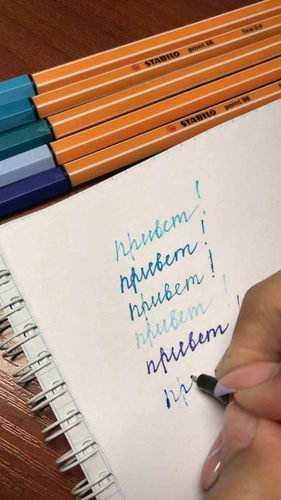 STABILO point 88 fine 0,4
STABILO point 88
привет!
привет!
привет!
привет!
привет!
пр